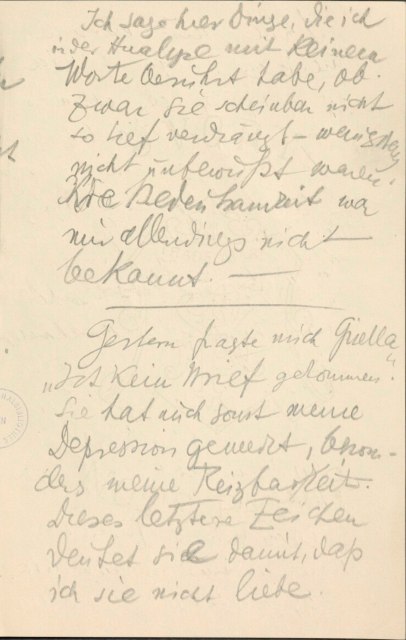 Ich sage hier Dinge, die ich
in der Analyse mit keinem
Worte berührt habe, ob-
zwar sie scheinbar nicht
so tief verdrängt – wenigstens
nicht unbewußt waren.
Ihre Bedeutsamkeit war
mir allerdings nicht
bekannt. —
Gestern fragte mich Gisella
„Ist kein Brief gekommen"
Sie hat auch sonst meine
Depression gemerkt, beson-
ders meine Reizbarkeit.
Dieses letztere Zeichen
deutet sie damit, daß
ich sie nicht liebe.